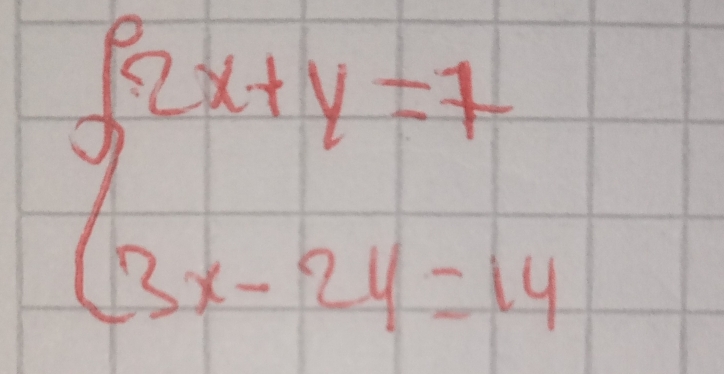 2x+y=7
3x-2y=14